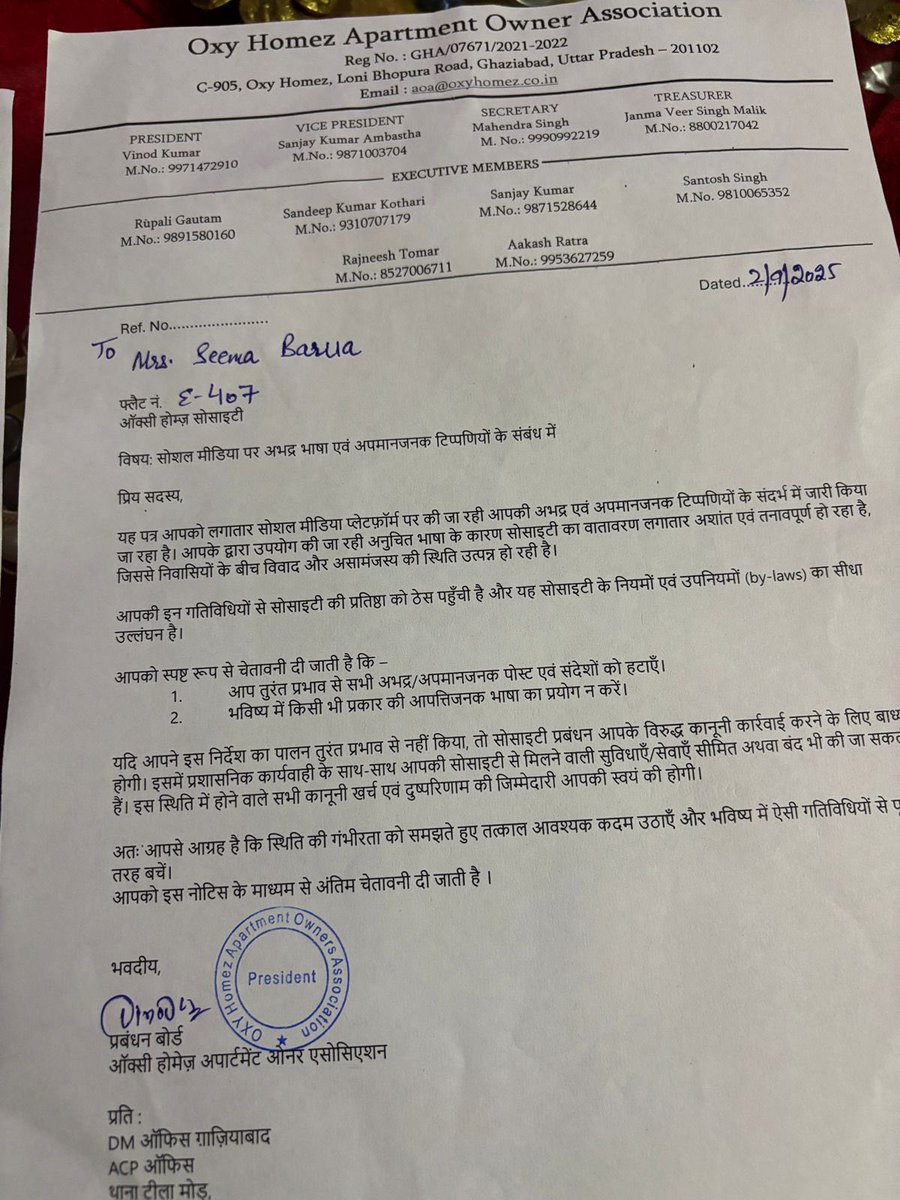 Oxy Homez Apartment Owner Association
Reg No. : GHA/07671/2021-2022
C-905, Oxy Homez, Loni Bhopura Road, Ghaziabad, Uttar Pradesh – 201102
Email : aoa@oxyhomez.co.in
PRESIDENT
Vinod Kumar
M.No.: 9971472910
VICE PRESIDENT
Sanjay Kumar Ambastha
M.No.: 9871003704
SECRETARY
Mahendra Singh
M. No.: 9990992219
TREASURER
Janma Veer Singh Malik
M.No.: 8800217042
EXECUTIVE MEMBERS
Rupali Gautam
M.No.: 9891580160
Sandeep Kumar Kothari
M.No.: 9310707179
Sanjay Kumar
M.No.: 9871528644
Santosh Singh
M.No. 9810065352
Rajneesh Tomar
M.No.: 8527006711
Aakash Ratra
M.No.: 9953627259
Dated..2/9/2025
Ref. No.......................
To Mrs. Seema Barua
फ्लैट नं. E-407
ऑक्सी होम्ज़ सोसाइटी
विषय: सोशल मीडिया पर अभद्र भाषा एवं अपमानजनक टिप्पणियों के संबंध में
प्रिय सदस्य,
यह पत्र आपको लगातार सोशल मीडिया प्लेटफ़ॉर्म पर की जा रही आपकी अभद्र एवं अपमानजनक टिप्पणियों के संदर्भ में जारी किया
जा रहा है। आपके द्वारा उपयोग की जा रही अनुचित भाषा के कारण सोसाइटी का वातावरण लगातार अशांत एवं तनावपूर्ण हो रहा है,
जिससे निवासियों के बीच विवाद और असामंजस्य की स्थिति उत्पन्न हो रही है।
आपकी इन गतिविधियों से सोसाइटी की प्रतिष्ठा को ठेस पहुँची है और यह सोसाइटी के नियमों एवं उपनियमों (by-laws) का सीधा
उल्लंघन है।
आपको स्पष्ट रूप से चेतावनी दी जाती है कि –
1. आप तुरंत प्रभाव से सभी अभद्र/अपमानजनक पोस्ट एवं संदेशों को हटाएँ।
2. भविष्य में किसी भी प्रकार की आपत्तिजनक भाषा का प्रयोग न करें।
यदि आपने इस निर्देश का पालन तुरंत प्रभाव से नहीं किया, तो सोसाइटी प्रबंधन आपके विरुद्ध कानूनी कार्रवाई करने के लिए बाध्य
होगी। इसमें प्रशासनिक कार्यवाही के साथ-साथ आपकी सोसाइटी से मिलने वाली सुविधाएँ/सेवाएँ सीमित अथवा बंद भी की जा सकत
हैं। इस स्थिति में होने वाले सभी कानूनी खर्च एवं दुष्परिणाम की जिम्मेदारी आपकी स्वयं की होगी।
अतः आपसे आग्रह है कि स्थिति की गंभीरता को समझते हुए तत्काल आवश्यक कदम उठाएँ और भविष्य में ऐसी गतिविधियों से
तरह बचें।
आपको इस नोटिस के माध्यम से अंतिम चेतावनी दी जाती है ।
भवदीय,
OXY Homez Apartment Owners Association
President
प्रबंधन बोर्ड
ऑक्सी होमेज़ अपार्टमेंट ओनर एसोसिएशन
प्रति :
DM ऑफिस ग़ाज़ियाबाद
ACP ऑफिस
थाना टीला मोड़,